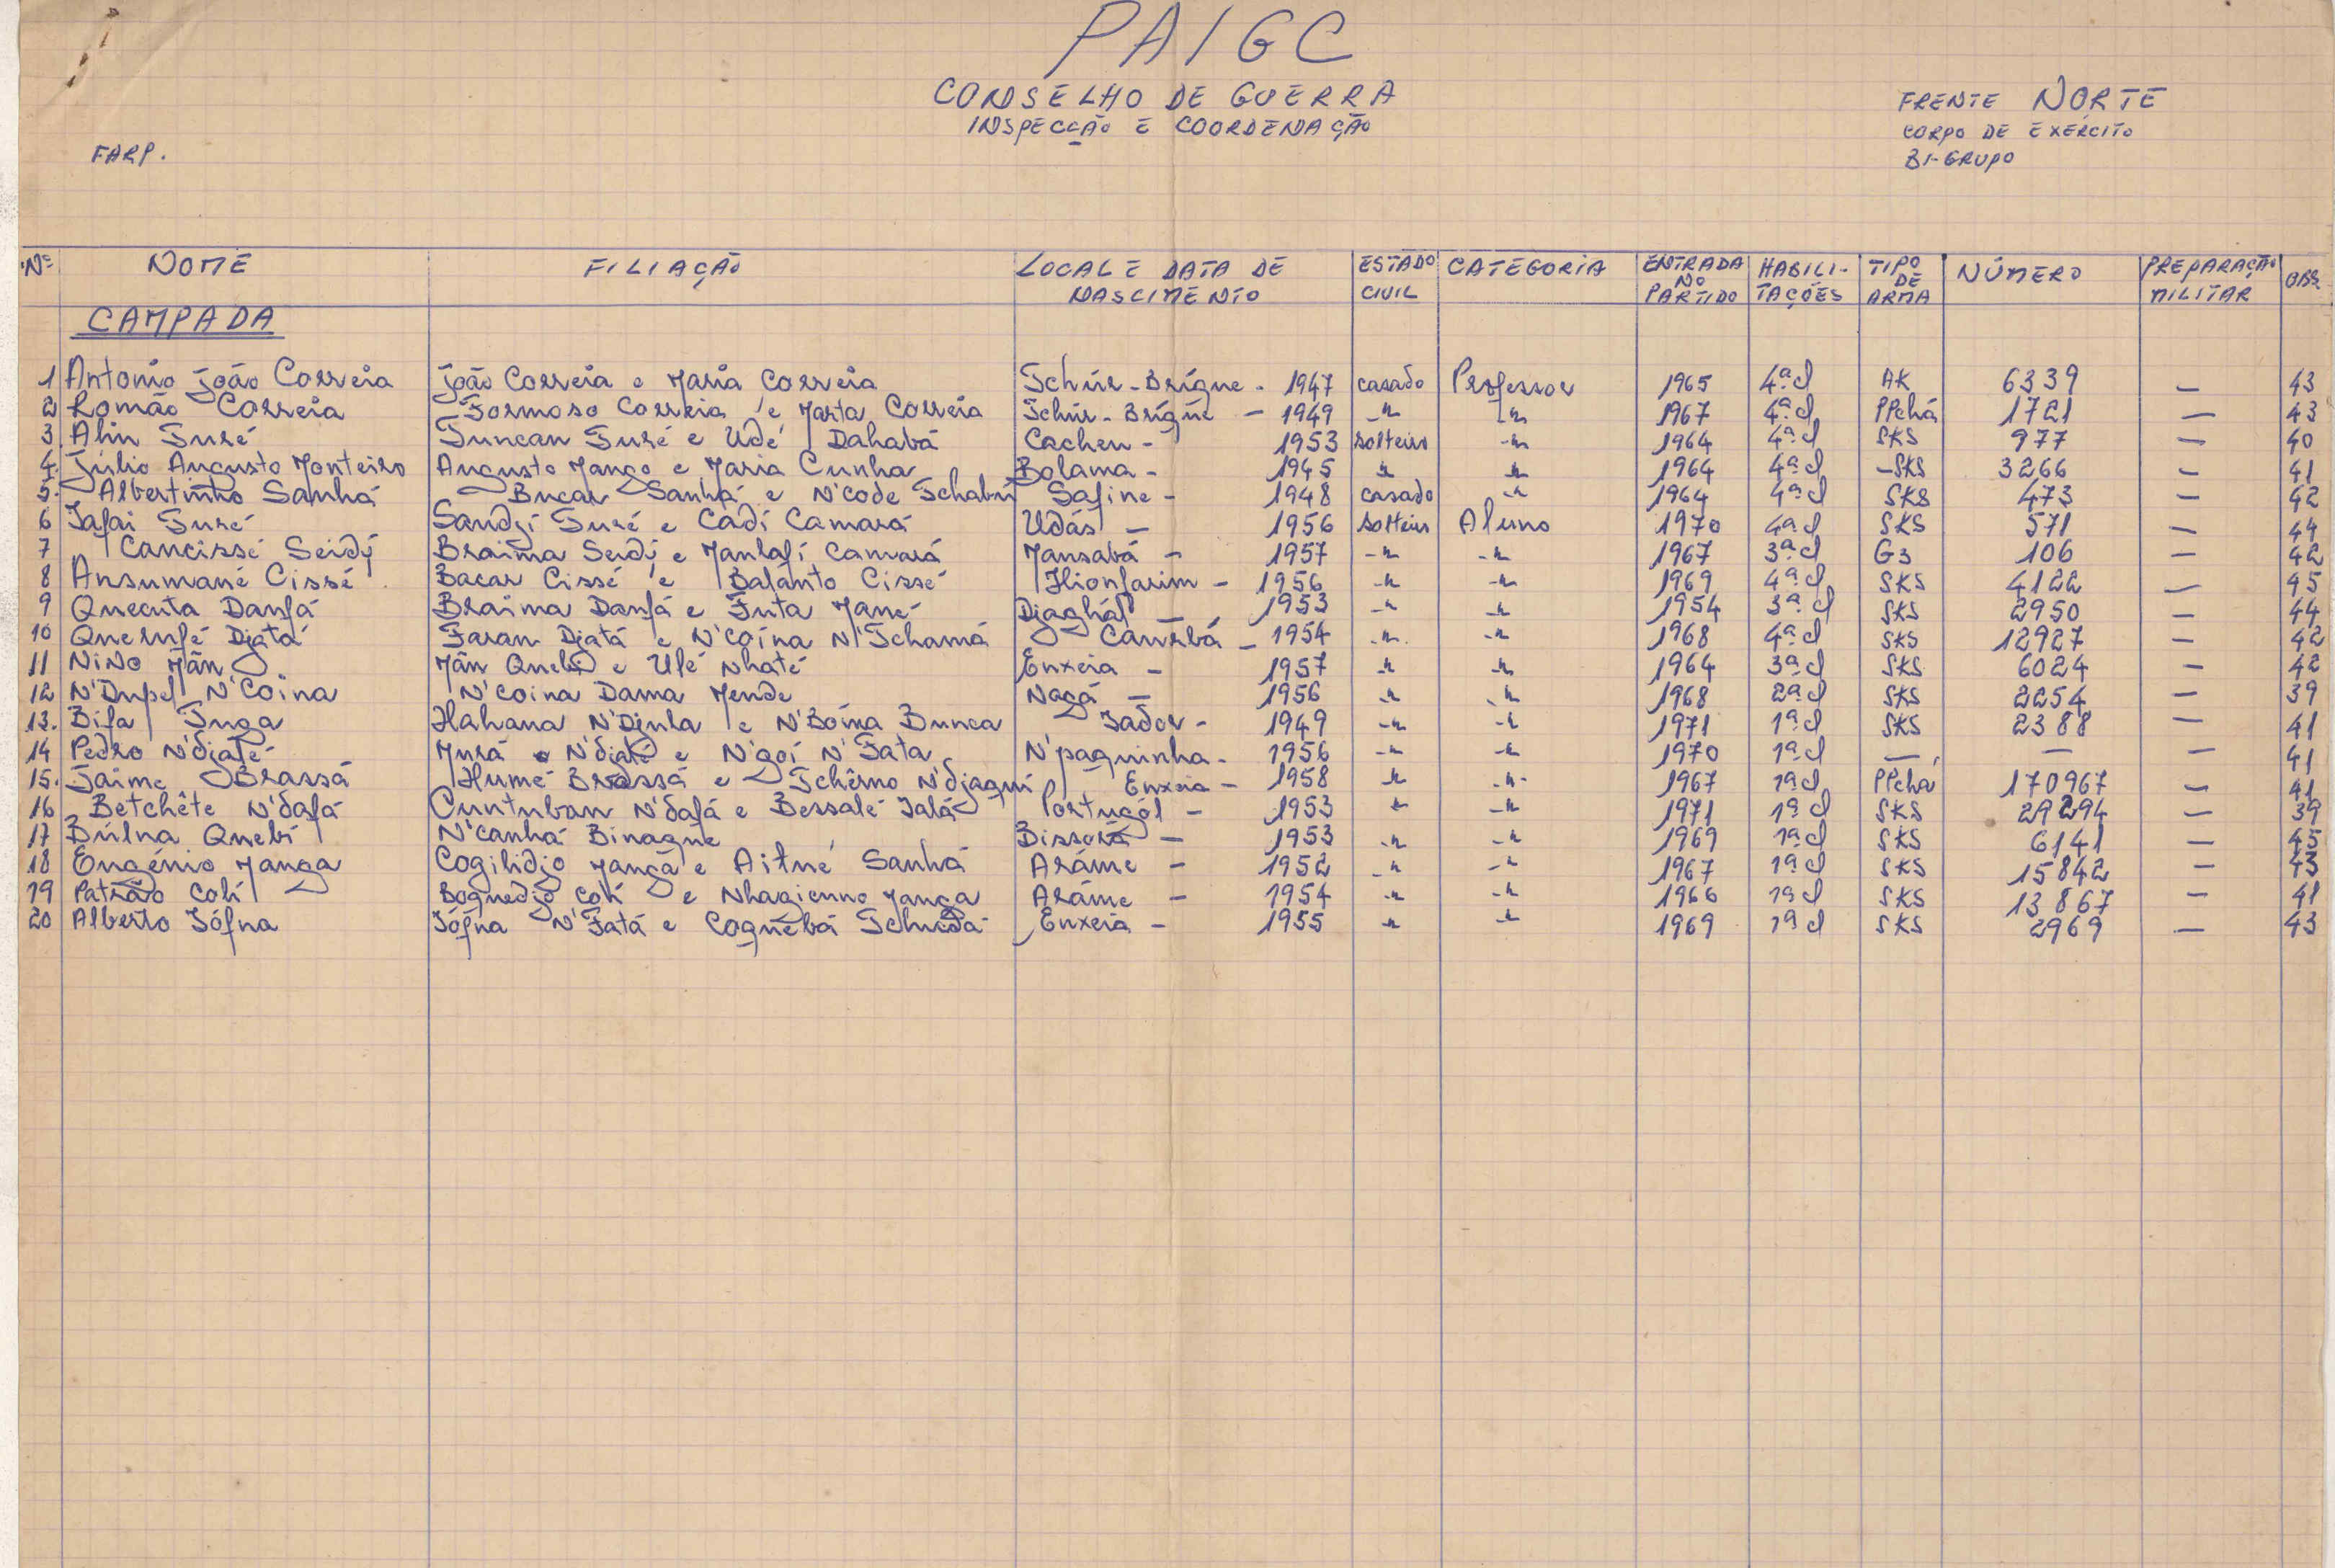 PAIGC
CONSELHO DE GUERRA
INSPECÇÃO E COORDENAÇÃO
FRENTE NORTE
CORPO DE EXÉRCITO
BI-GRUPO
FARP.
Nº NOME FILIAÇÃO LOCAL E DATA DE NASCIMENTO ESTADO CIVIL CATEGORIA ENTRADA NO PARTIDO HABILI-TAÇÕES TIPO DE ARMA NÚMERO PREPARAÇÃO MILITAR OBS.
CAMPADA
1 Antonio João Correia João Correia e Maria Correia Tchúr-Brígue - 1947 casado Professor 1965 4ª cl AK 6339 — 43
2 Romão Correia Formoso Correia e Marta Correia Tchúr-Brígue - 1949 -"- -"- 1967 4ª cl PPchá 1721 — 43
3. Aliu Turé Tuncan Turé e Udé Dahabá Cacheu - 1953 solteiro -"- 1964 4ª cl SKS 977 — 40
4. Júlio Augusto Monteiro Augusto Mango e Maria Cunha Bolama - 1945 -"- -"- 1964 4ª cl -SKS 3266 — 41
5. Albertinho Sanhá Bucar Sanhá e N'code Tchabú Safine - 1948 casado -"- 1964 4ª cl SKS 473 — 42
6 Iafai Turé Sandjí Turé e Cadí Camará Udás - 1956 solteiro Aluno 1970 4ª cl SKS 571 — 44
7 Cancissé Seidý Braima Seidý e Mantafí Camará Mansabá - 1957 -"- -"- 1967 3ª cl G3 106 — 42
8 Ansumané Cissé Bacar Cissé e Balanto Cissé - 1956 -"- -"- 1969 4ª cl SKS 4122 — 45
9 Quecuta Danfá Braima Danfá e Futa Mané Djaghál - 1953 -"- -"- 1954 3ª cl SKS 2950 — 44
10 Querufé Djatá Faran Djatá e N'coína N'Tchamá Canrbá - 1954 -"- -"- 1968 4ª cl SKS 12927 — 42
11 NiNo Mãn Mãn Quebí e Ulé Nhaté Enxeia - 1957 -"- -"- 1964 3ª cl SKS 6024 — 42
12 N'Dupel N'Coina N'coina Dama Mende Nagá - 1956 -"- -"- 1968 2ª cl SKS 2254 — 39
13. Bifa Tuga Hahana N'Djula e N'Boína Bunca Iador - 1949 -"- -"- 1971 1ª cl SKS 2388 — 41
14 Pedro N'diaté Murá N'diaté e N'goí N'Fata N'paquinha - 1956 -"- -"- 1970 1ª cl — — — 41
15. Jaime Brassá Humé Brassá e Tchêrno N'djaquí Enxeia - 1958 -"- -"- 1967 1ª cl PPchá 170967 — 41
16 Betchête N'dafá Cuntuban N'dafá e Bessalé Ialá Portugól - 1953 -"- -"- 1971 1ª cl SKS 29294 — 39
17 Búlna Quebí N'canhá Binague Bissorã - 1953 -"- -"- 1969 1ª cl SKS 6141 — 45
18 Eugénio Manga Cogilidjo Manga e Aitné Sanhá Aráme - 1952 -"- -"- 1967 1ª cl SKS 15842 — 43
19 Patrão Colí Boguedjo Colí e Nhagienno Manga Aráme - 1954 -"- -"- 1966 1ª cl SKS 13867 — 41
20 Alberto Iófna Iófna N'Fatá e Coguebá Tchuda Enxeia - 1955 -"- -"- 1969 1ª cl SKS 2969 — 43